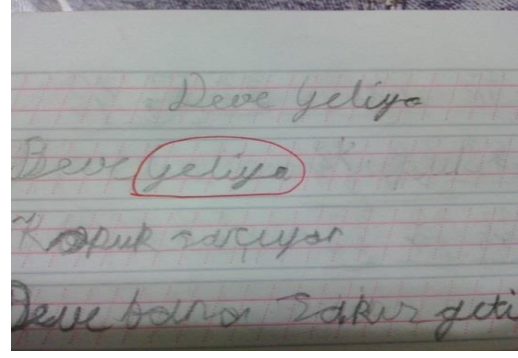 Deve geliyo
Deve geliyo
Köpük saçıyor
Deve bana sakız geti